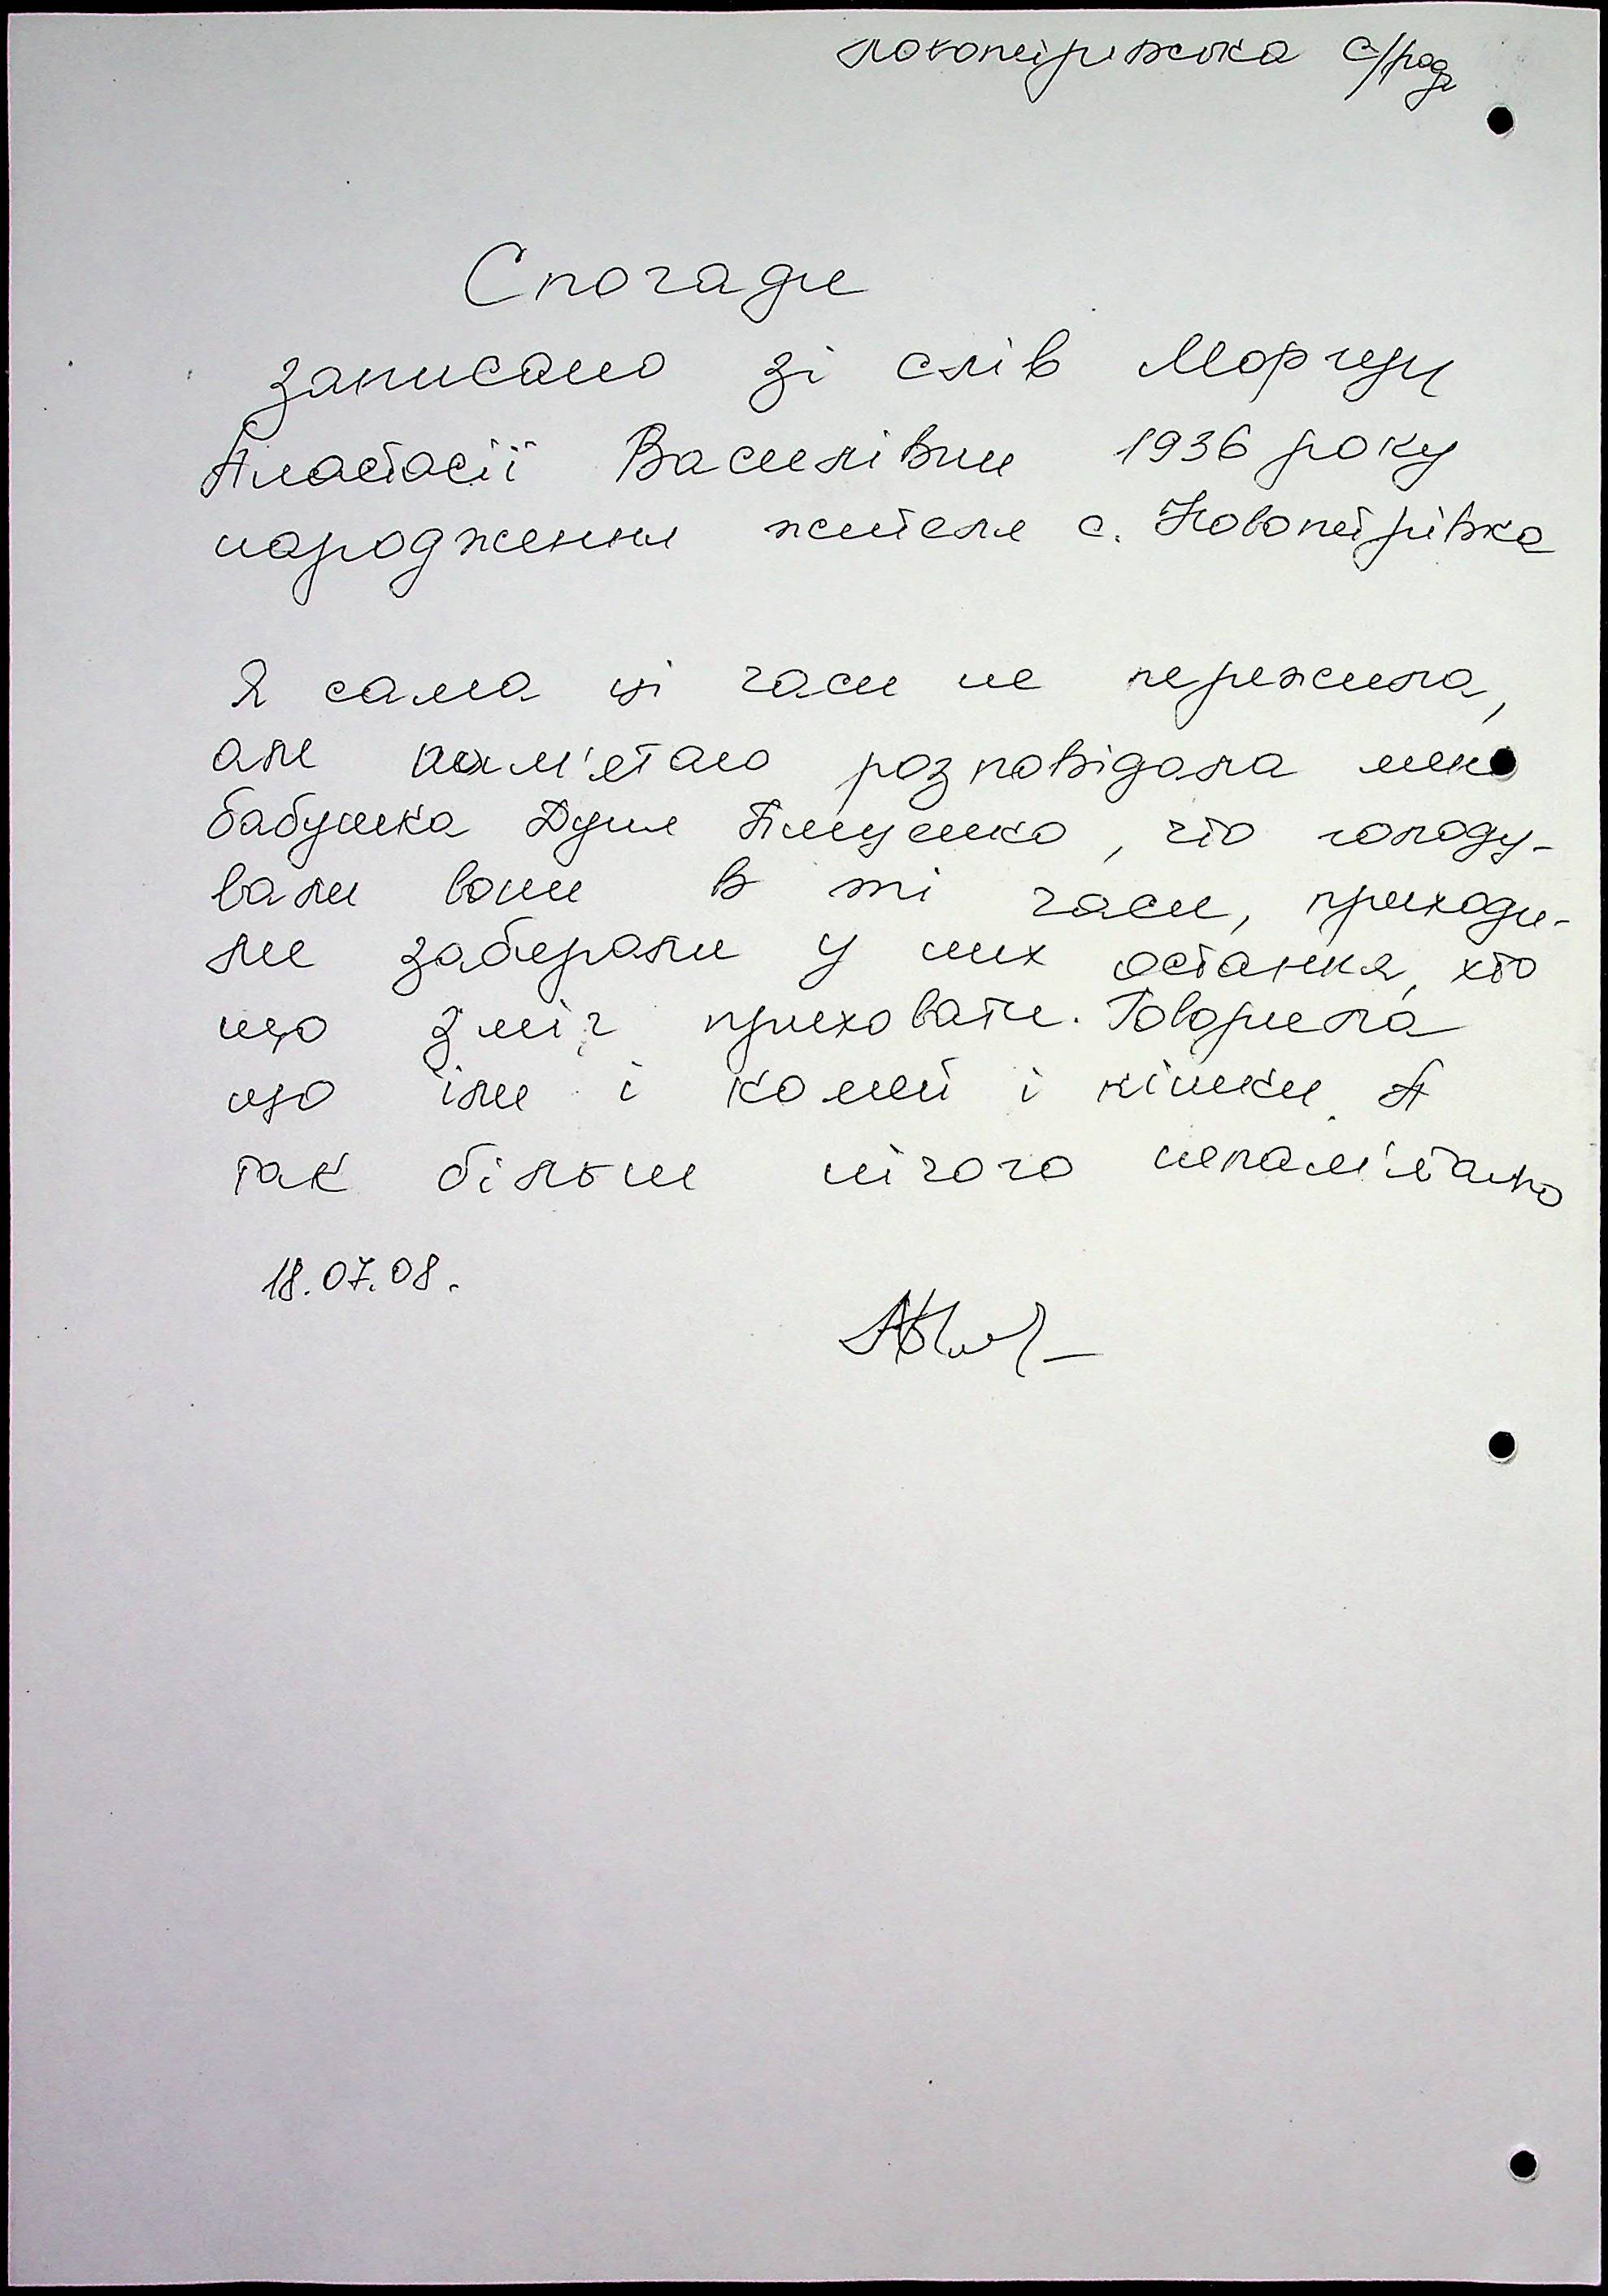 новопетрівська с/рада
Спогади
записано зі слів Моргун
Анастасії Василівни 1936 року
народження жителя с. Новопетрівка
Я сама ці часи не пережила,
але пам'ятаю розповідала мені
бабушка Дуня, что голоду-
вали вони в ті часи, приходи-
ли заберали у них остання, хто
що зміг приховати. Говорила
що їли і коней і кішки. А
так більш нічого непам'ятаю
18.07.08.